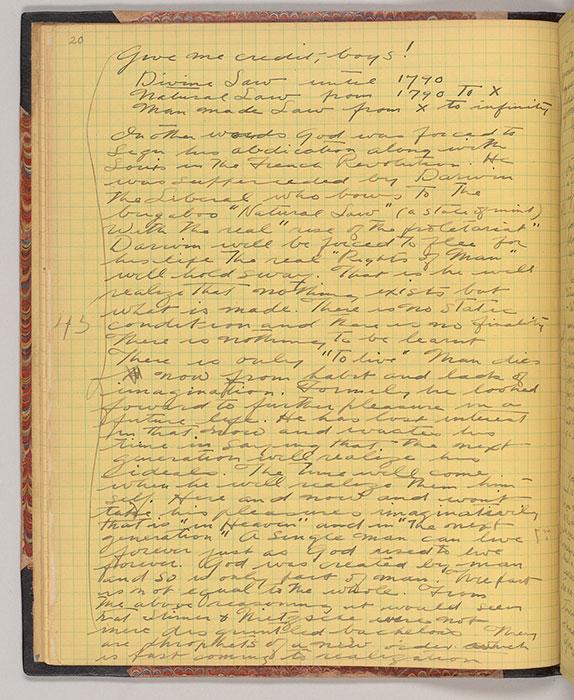 20
Give me credit, boys!
Divine Law until 1790
Natural Law from 1790 to X
Man made Law from X to infinity
In other words God was forced to
sign his abdication along with
Louis in the French Revolution. He
was supperceded by Darwin
the Liberal who bows to the
bugaboo "Natural Law" (a state of mind)
With the real "rise of the proletariat"
Darwin will be forced to flee for
his life. The real "Rights of Man"
will hold sway. That is he will
realize that nothing exists but
what is made. There is no static
43
condition and there is no finality
There is nothing to be learnt
There is only "to live" Man dies
now from habit and lack of
imagination. Formely he looked
forward to further pleasure in a
future life. He has lost interest
in that and
time in saying that the next
generation will realize his
ideals. The time will come
when he will realize them him-
self. Here and now and won't
take his pleasures imaginatively
that is "in Heaven" and in "the next
generation" A single man can live
forever just as God used to live
forever. God was created by man
and so is only part of man. The part
is not equal to the whole. From
the above reasoning it would seem
that Stirner & Nietzsche were not
mere disgruntled bachelors They
are phrophets of a new order which
is fast coming to realization